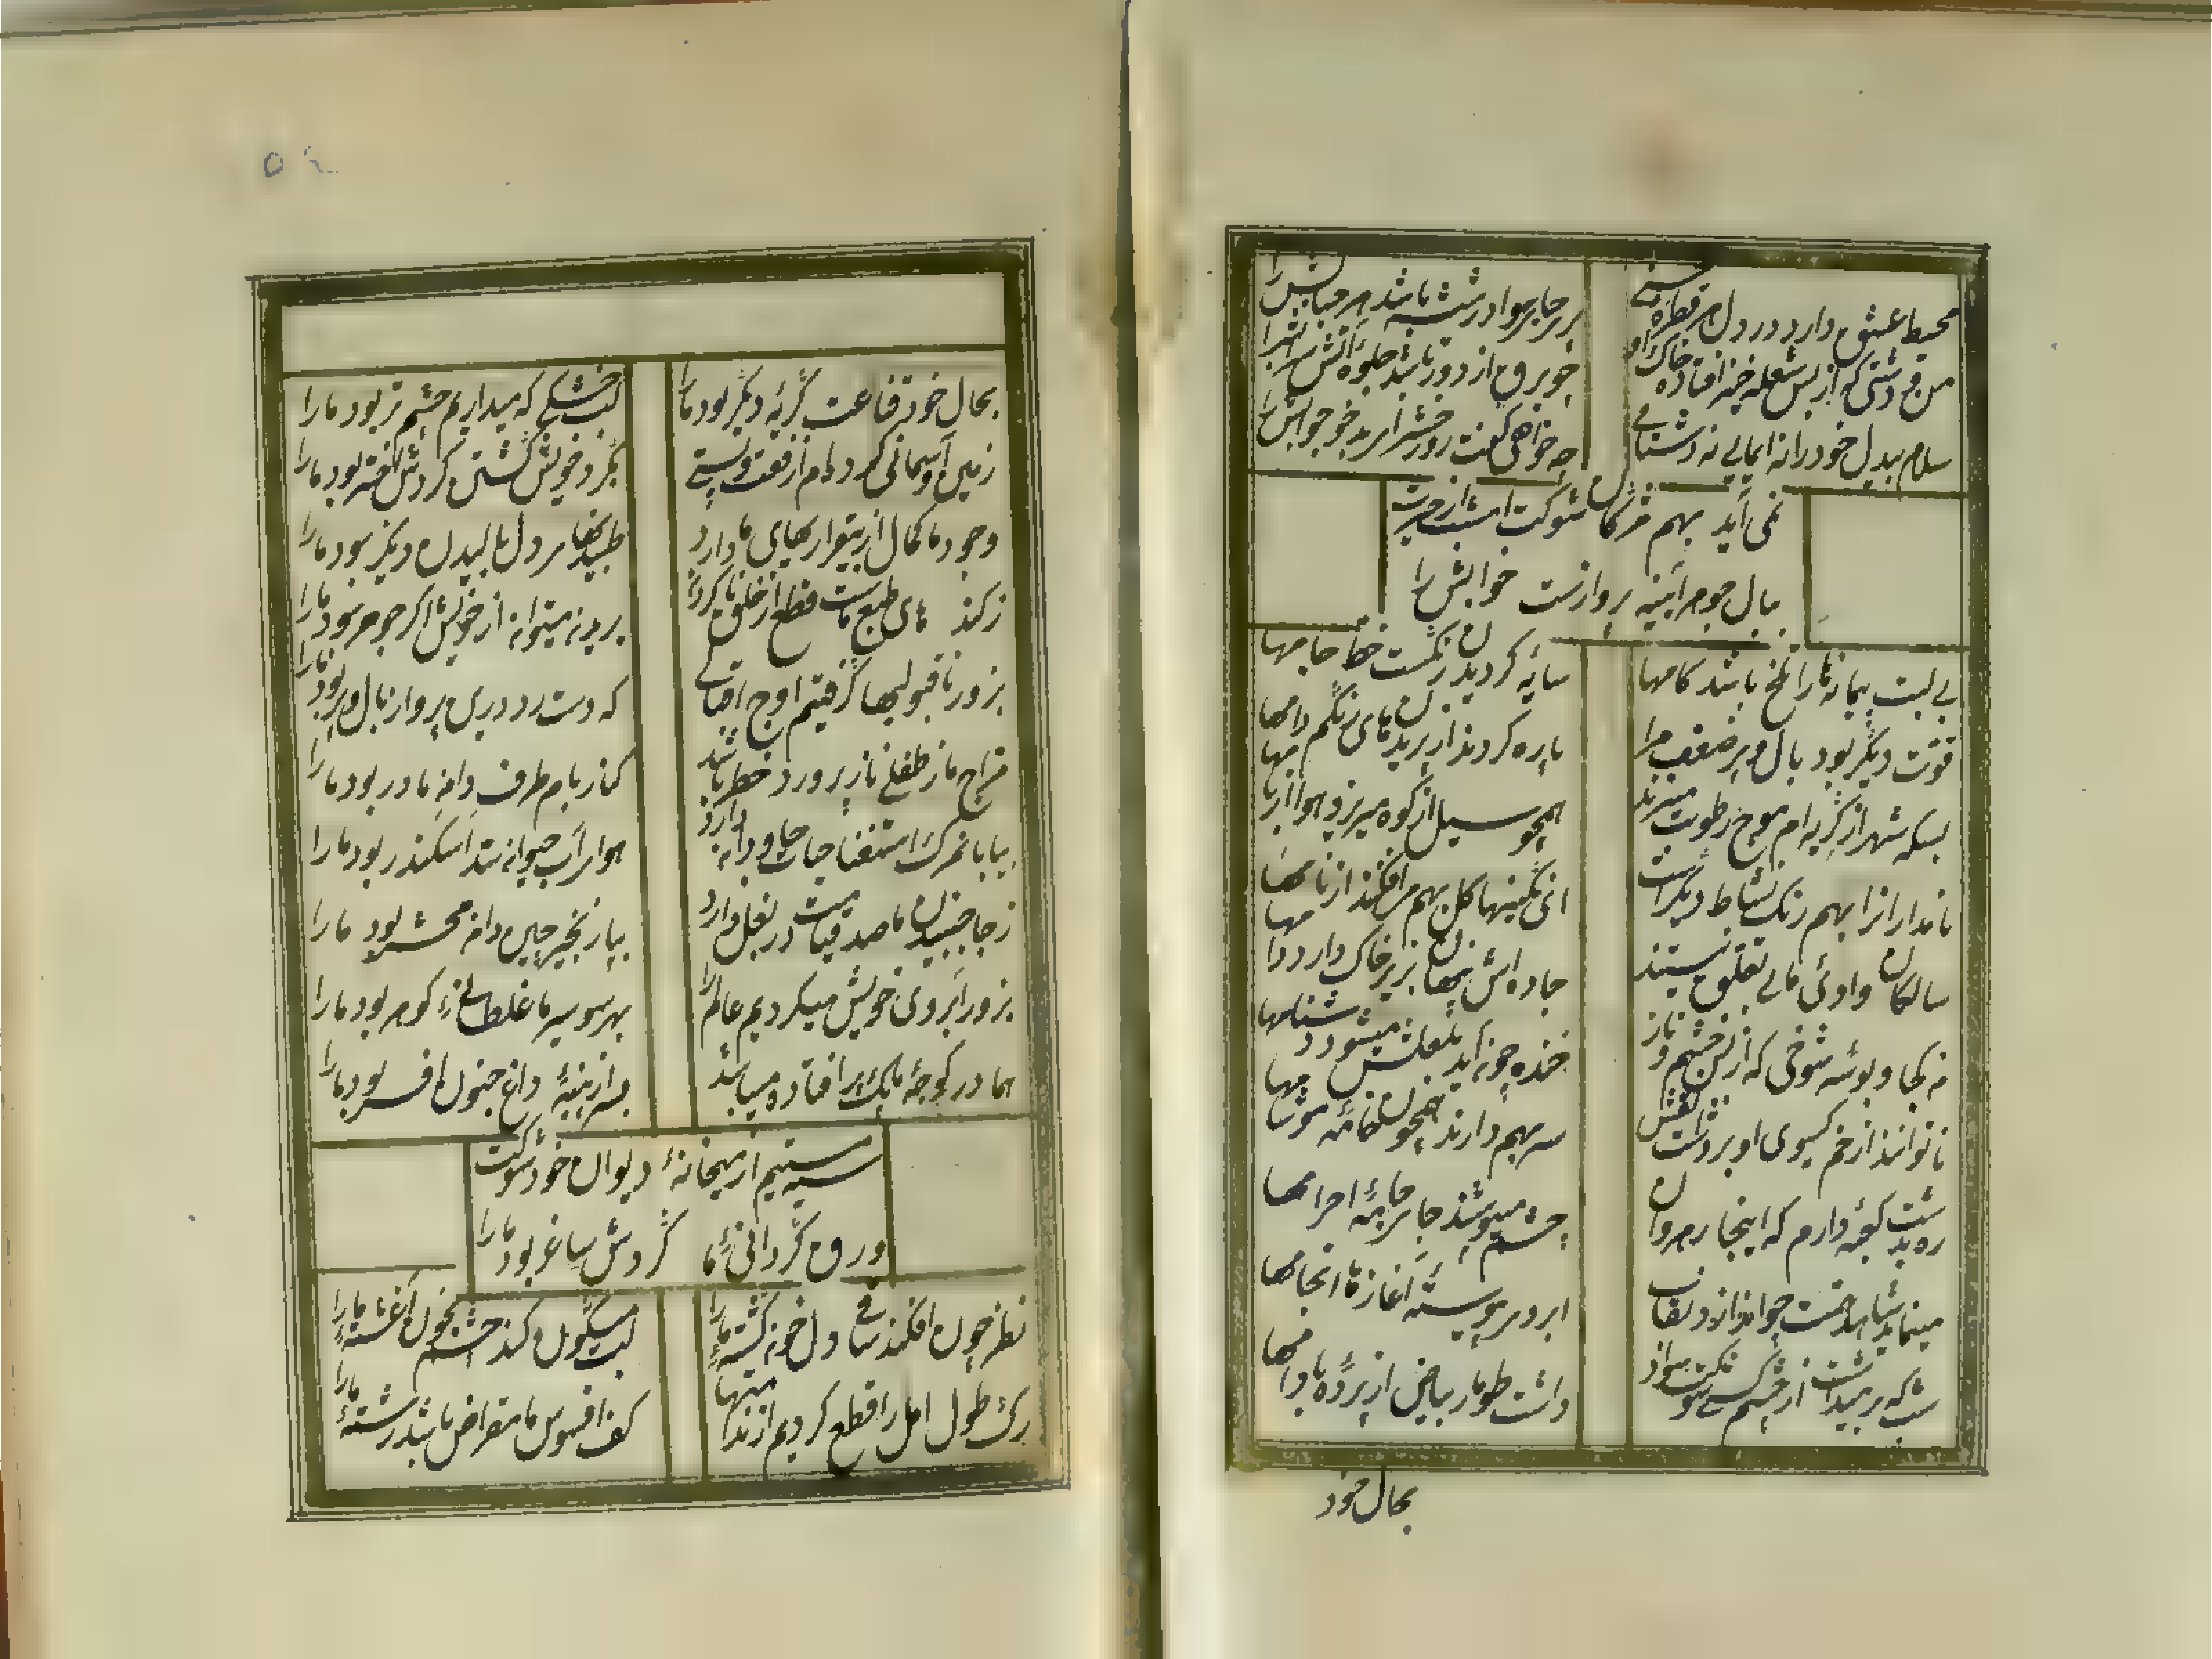 محیط عشق دارد در دل هر قطره
بر جابر هوا در شب باشد هر حبابش را
من و دشتی که از بس شعله خیز افتاده خاک او
چو برق از دور باشد جلوه آتش سرابش را
سلام بیدل خود را نه ایمایی نه دشنامی
چه خواهی گفت روز حشر ای بدخو جوابش را
نمی آید بهم مژگان شوکت امشب از حیرت
ببال جوهر آیینه پروازست خوابش را
بی لبت پیمانه ما را تلخ باشد کامها
سایه گردیدن شکست خط جامها
قوت دیگر بود بال و پر ضعف مرا
پاره کردند از پریدنهای رنگم دامها
بسکه شهر از گریه ام موج رطوبت میزند
همچو سیل از کوه میریزد هوا از بامها
نامداران را بهم رنگ نشاط دیگر است
از نگینها گل بهم می افکند از نامها
سالکان وادئ مابی تعلق نیستند
جاده اش پنهان بزیر خاک دارد دامها
من کجا و بوسه شوخی که از خشم و ناز
خنده چون آید بلعلش میشود دشنامها
ناتوانند از خم گیسوی او برداشتنش
سر بهم دارند همچون شانه
پشت کعبه دارم که اینجا رهروان
چشم میپوشند جای جامه احرامها
مینماید شاهد وحدت چو اندازد نقاب
ابروی پیوسته آغازها انجامها
شب که برمیداشت از چشم شوکت سواد
داشت طومار بیاض از پرده بادامها
بحال خود
بحال خود قناعت گریه دیگر بود ما را
لب خشکی که میداریم چشم تر بود ما را
زمین و آسمانی کرده ام از رفعت و پستی
بگرد خویش گشتن گردش اختر بود ما را
وجود ما کمال از بیقراریهای ما دارد
طپیدنهای دل بالیدن دیگر بود ما را
طبع ماست قطع از خلق ما کردن
بریدن میتوان از خویش اگر جوهر بود ما را
بزور ناقبولیها گرفتیم اوج اقبالی
که دست رد دری پرواز بال و پر بود ما را
مزاج ما ز طفلی نازپرورد خطر باشد
کنار بام طرف دامن مادر بود ما را
بیابان مرگ استغنا حیات جاودان دارد
هوای آب حیوان سد اسکندر بود ما را
ز جا جنبیدن ما صد قیامت در بغل دارد
بپا زنجیر چین دامن محشر بود ما را
بزور آبروی خویش میکردیم عالم را
بهر سو سیر ما غلطانئ گوهر بود ما را
هما در کوچه ما یک پر افتاده میباشد
بسر از پنبه داغ جنون افسر بود ما را
سیه مستیم از میخانه دیوان خود شوکت
ورق گردانئ ما گردش ساغر بود ما را
نظر چون افکند ساقی دل خون گشته ما را
لب میگون کند چشم بخون آغشته ما را
رگ طول امل را قطع کردیم از ندامتها
کف افسوس ما مقراض باشد رشته ما را